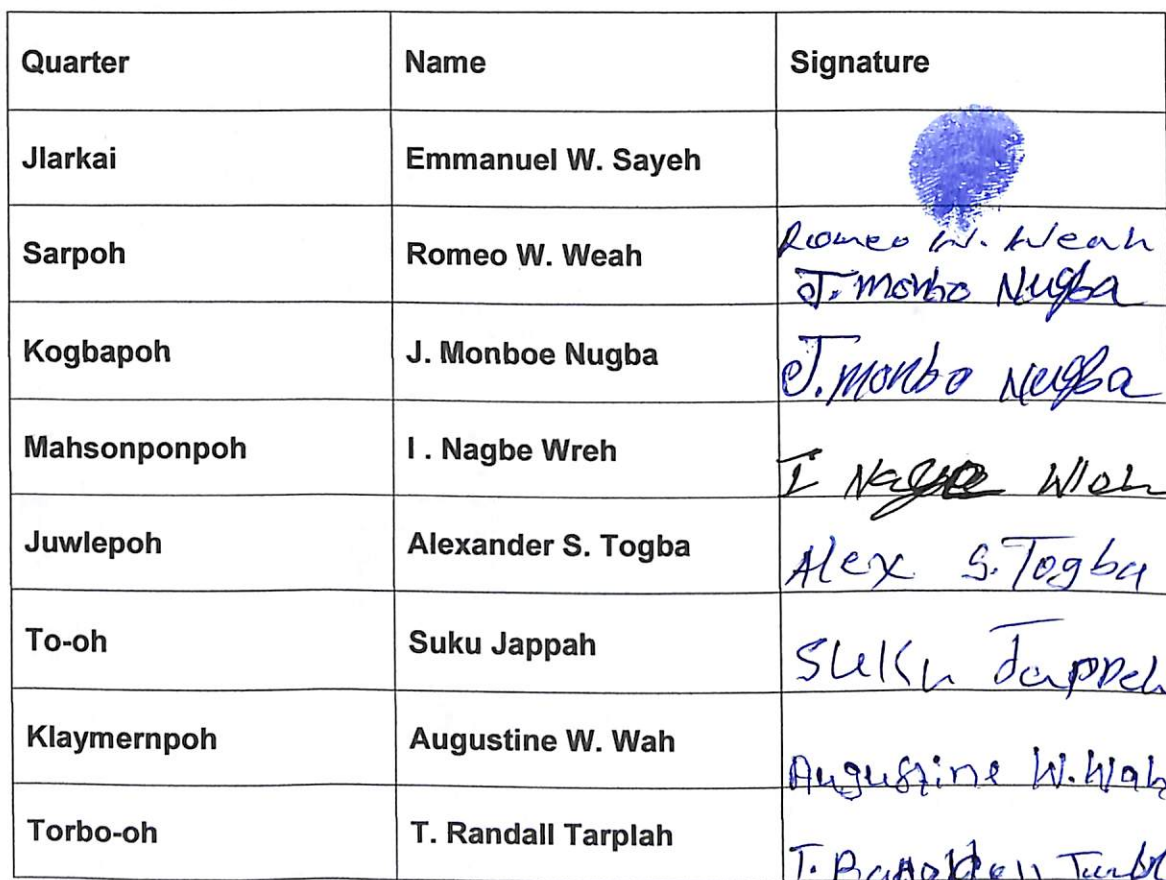 Quarter Name Signature
Jlarkai Emmanuel W. Sayeh
Sarpoh Romeo W. Weah Romeo W. Weah
J. Monbo Nugba
Kogbapoh J. Monboe Nugba J. Monbo Nugba
Mahsonponpoh I . Nagbe Wreh I Nagbe
Juwlepoh Alexander S. Togba Alex S. Togba
To-oh Suku Jappah Suku Jappeh
Klaymernpoh Augustine W. Wah Augustine W. Wah
Torbo-oh T. Randall Tarplah T.